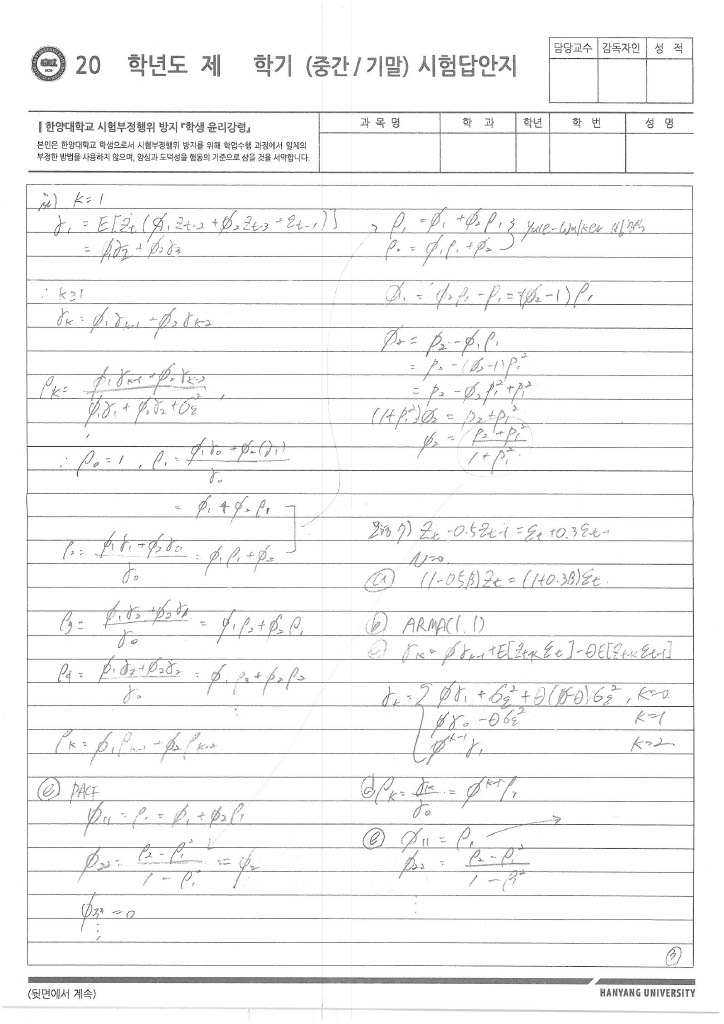 20 학년도 제 학기 (중간 / 기말) 시험답안지
담당교수 감독자인 성 적
한양대학교 시험부정행위 방지 『학생 윤리강령』
본인은 한양대학교 학생으로서 시험부정행위 방지를 위해 학업수행 과정에서 일체의
부정한 방법을 사용하지 않으며, 양심과 도덕성을 행동의 기준으로 삼을 것을 서약합니다.
과 목 명 학 과 학년 학 번 성 명
iii) k=1
γ₁ = E[Zₜ(ϕ₁Zₜ₋₂+ϕ₂Zₜ₋₃+εₜ₋₁)]
= ϕ₁γ₂+ϕ₂γ₃
∴ k≥1
γₖ = ϕ₁γₖ₋₁+ϕ₂γₖ₋₂
ρₖ = (ϕ₁γₖ₋₁+ϕ₂γₖ₋₂)/(ϕ₁γ₁+ϕ₂γ₂+σε²),
∴ ρ₀=1, ρ₁ = (ϕ₁γ₀+ϕ₂(γ₁))/γ₀
= ϕ₁+ϕ₂ρ₁
ρ₂ = (ϕ₁γ₁+ϕ₂γ₀)/γ₀ = ϕ₁ρ₁+ϕ₂
ρ₃ = (ϕ₁γ₂+ϕ₂γ₁)/γ₀ = ϕ₁ρ₂+ϕ₂ρ₁
ρ₄ = (ϕ₁γ₃+ϕ₂γ₂)/γ₀ = ϕ₁ρ₃+ϕ₂ρ₂
⋮
ρₖ = ϕ₁ρₖ₋₁+ϕ₂ρₖ₋₂
ⓔ PACF
ϕ₁₁ = ρ₁ = ϕ₁+ϕ₂ρ₁
ϕ₂₂ = (ρ₂-ρ₁²)/(1-ρ₁²) = ϕ₂
ϕ₃₃ = 0
⋮
ρ₁ = ϕ₁+ϕ₂ρ₁
ρ₂ = ϕ₁ρ₁+ϕ₂ } Yule-Walker 방정식
ϕ₁ = ϕ₂ρ₁-ρ₁ = (ϕ₂-1)ρ₁
ϕ₂ = ρ₂-ϕ₁ρ₁
= ρ₂-(ϕ₂-1)ρ₁²
= ρ₂-ϕ₂ρ₁²+ρ₁²
(1+ρ₁²)ϕ₂ = ρ₂+ρ₁²
ϕ₂ = (ρ₂+ρ₁²)/(1+ρ₁²)
7) Zₜ-0.5Zₜ₋₁ = εₜ+0.3εₜ₋₁
ⓐ (1-0.5B)Zₜ = (1+0.3B)εₜ
ⓑ ARMA(1.1)
ⓒ γₖ = ϕγₖ₋₁+E[Zₜ₊ₖεₜ]-θE[Zₜ₊ₖεₜ₋₁]
γₖ = { ϕγ₁+σε²+θ(ϕ-θ)σε², k=0
ϕγ₀-θσε² k=1
ϕᵏ⁻¹γ₁ k=2
ⓓ ρₖ = γₖ/γ₀ = ϕᵏ⁻¹ρ₁
ⓔ ϕ₁₁ = ρ₁
ϕ₂₂ = (ρ₂-ρ₁²)/(1-ρ₁²)
⋮
③
(뒷면에서 계속)
HANYANG UNIVERSITY